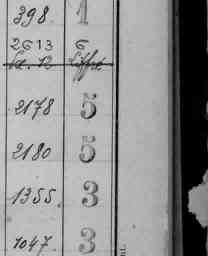 398 1
2613 6
2178 5
2180 5
1355. 3
1047. 3